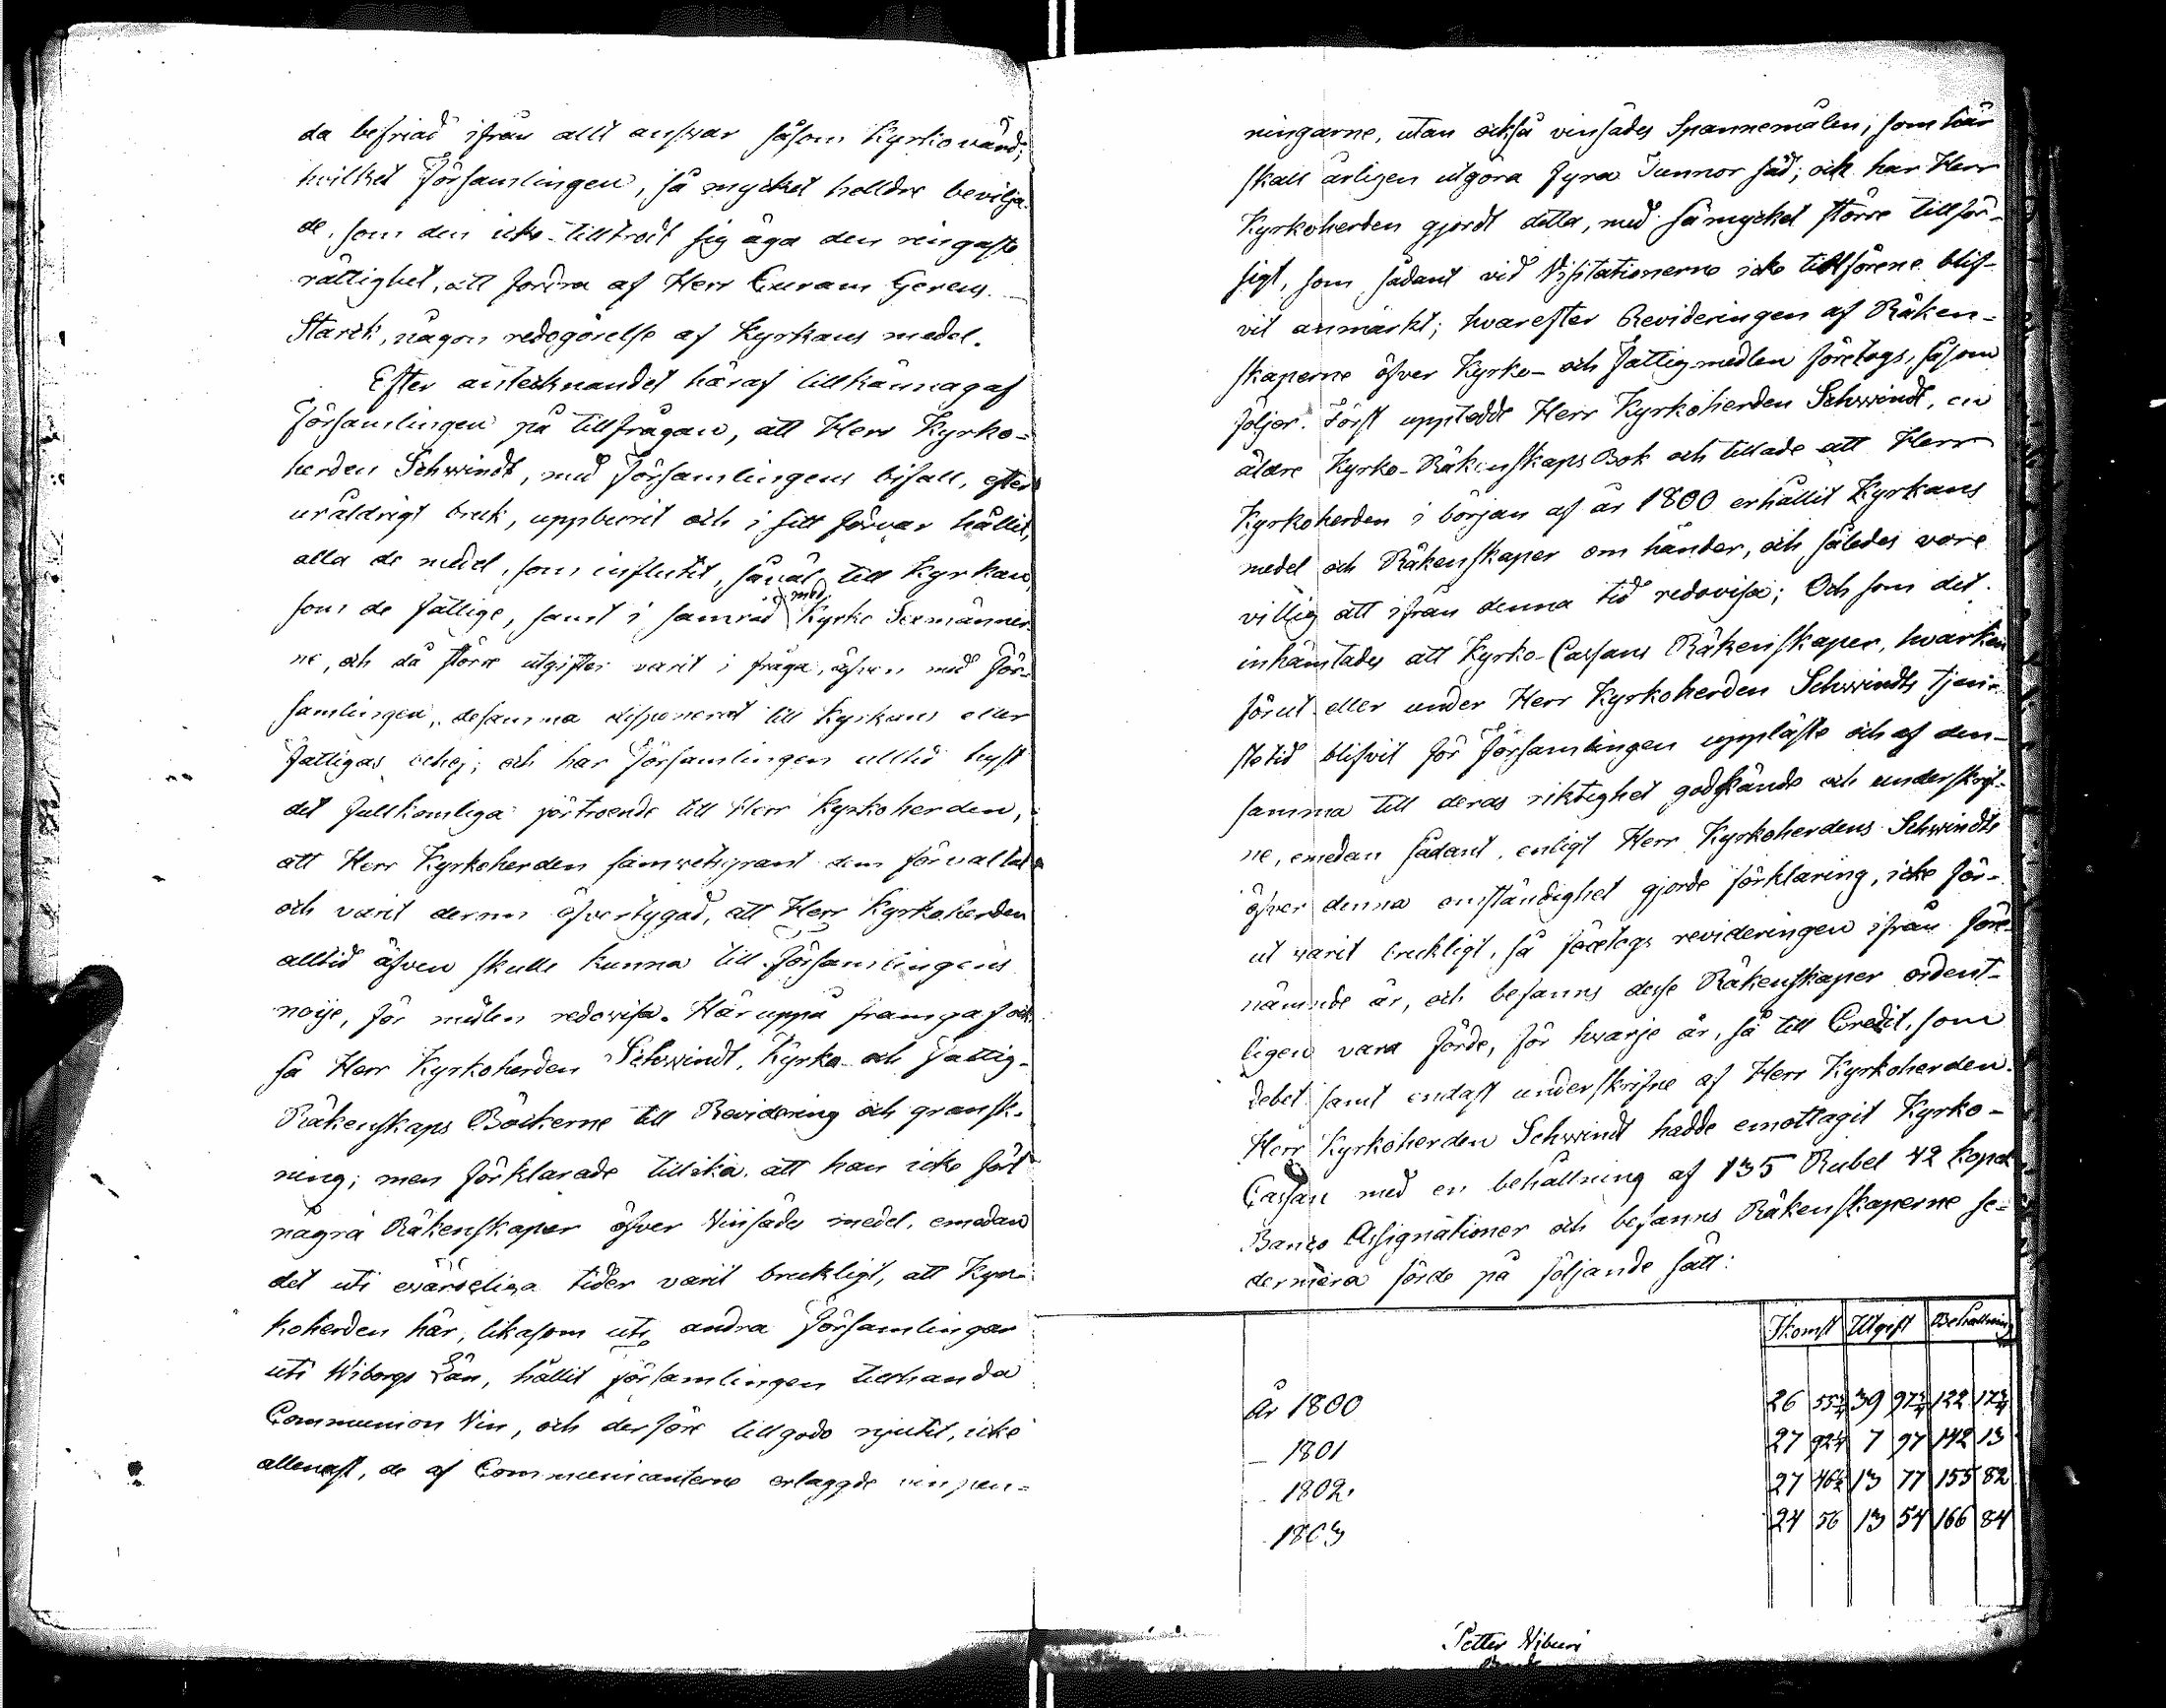 da befriad ifrån allt answar såsom Kyrkiovärd;
hvilket Församlingen, så mycket helldre bevilja-
de, som den icke tilltrodt sig äga den ringaste
rättighet, att fordra af Herr Curam Gerens
Starck, någon redogörelse af Kyrkans medel.
Efter antecknandet häraf tillkännagaf
Församlingen på tillfrågan, att Herr Kyrko-
herden Schwindt, med Församlingens bifall, efter
uråldrigt bruk, uppburit och i sitt förvar hållit,
alla de medel, som influtit, såväl till Kyrkan,
som de fattige, samt i samråd med Kyrko Sexmänner-
ne, och då större utgifter varit i fråga, äfven med För-
samlingen, desamma disponerat till Kyrkans eller
Fattigas behof; och har Församlingen alltid hyst
det fullkomliga förtroende till Herr Kyrkoherden,
att Herr Kyrkoherden samwetsgrant dem förvaltat
och varit derom öfvertygad, att Herr Kyrkoherden
alltid äfven skulle kunna till Församlingens
nöije, för medlen redovisa. Häruppå framgaf ock-
så Herr Kyrkoherden Schwindt, Kyrko- och Fattig-
Räkenskaps Böckerne till Revidering och gransk-
ning; men förklarade tillika att han icke fört
några Räkenskaper öfver Vinsäds medel, emedan
det uti ewärdeliga tider varit brukligt, att Kyr-
koherden här, likasom uti andra Församlingar
uti Wiborgs Län, hållit församlingen tillhanda
Communion Vin, och derföre tillgodo njutit, icke
allenast, de af Communicanterne erlaggde vinpen-
ningarne, utan också vinsäds Spannemålen, som här
skall årligen utgöra fyra Tunnor säd; och har Herr
Kyrkoherden gjordt detta, med så mycket större tillför-
sigt, som sådant vid Visitationerne icke tillförene blif-
vit anmärkt; hvarefter Revideringen af Räken-
skaperne öfver Kyrko- och Fattigmedlen företogs, såsom
följer. Först uppteddt Herr Kyrkoherden Schwindt, en
äldre Kyrko-Räkenskaps Bok och tillade att Herr
Kyrkoherden i början af år 1800 erhållit Kyrkans
medel och Räkenskaper om händer, och således vore
villig att ifrån denna tid redovisa; Och som det
inhämtades att Kyrko-Cassans Räkenskaper, hwarken
förut eller under Herr Kyrkoherden Schwindts tjen-
stetid blifvit för Församlingen uppläste och af den-
samma till deras riktighet godkände och underskrif-
ne, emedan sådant, enligt Herr Kyrkoherdens Schwindts
öfver denna omständighet gjorde förklaring, icke för-
ut warit brukligt, så företogs revideringen ifrån före-
nämnde år, och befanns desse Räkenskaper ordent-
ligen vara förde, för hwarje år, så till Credit, som
debet samt endast underskrifne af Herr Kyrkoherden.
Herr Kyrkoherden Schwindt hadde emottagit Kyrko-
Cassan med en behållning af 135 Rubel 42 Kopek
Banco Assignationer och befanns Räkenskaperne se-
dermera förde på följande sätt:
Ikomst Utgift Behållning
År 1800 26 55¾ 39 97¾ 122 17¾
— 1801 27 92¼ 7 97 142 13
— 1802. 27 46½ 13 77 155 82
1803 24 56 13 54 166 84
Petter